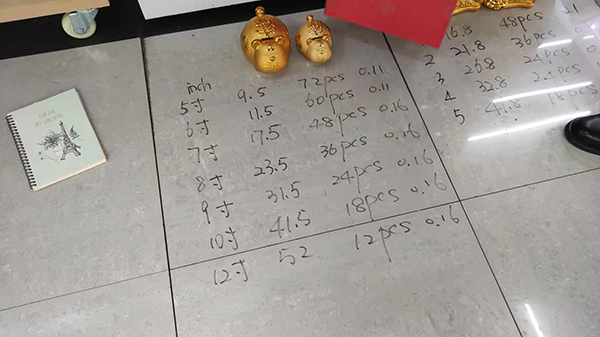 inch
5寸 9.5 72pcs 0.11
6寸 11.5 60pcs 0.11
7寸 17.5 48pcs 0.16
8寸 23.5 36pcs 0.16
9寸 31.5 24pcs 0.16
10寸 41.5 18pcs 0.16
12寸 52 12pcs 0.16
16.8 48pcs 0.1
2 21.8 36pcs
3 26.8 24pcs
4 32.8 24pcs
5